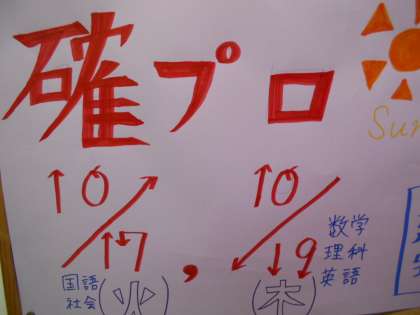 確プロ
Sun
10/17, 10/19
国語 数学
社会 理科
(火) (木) 英語